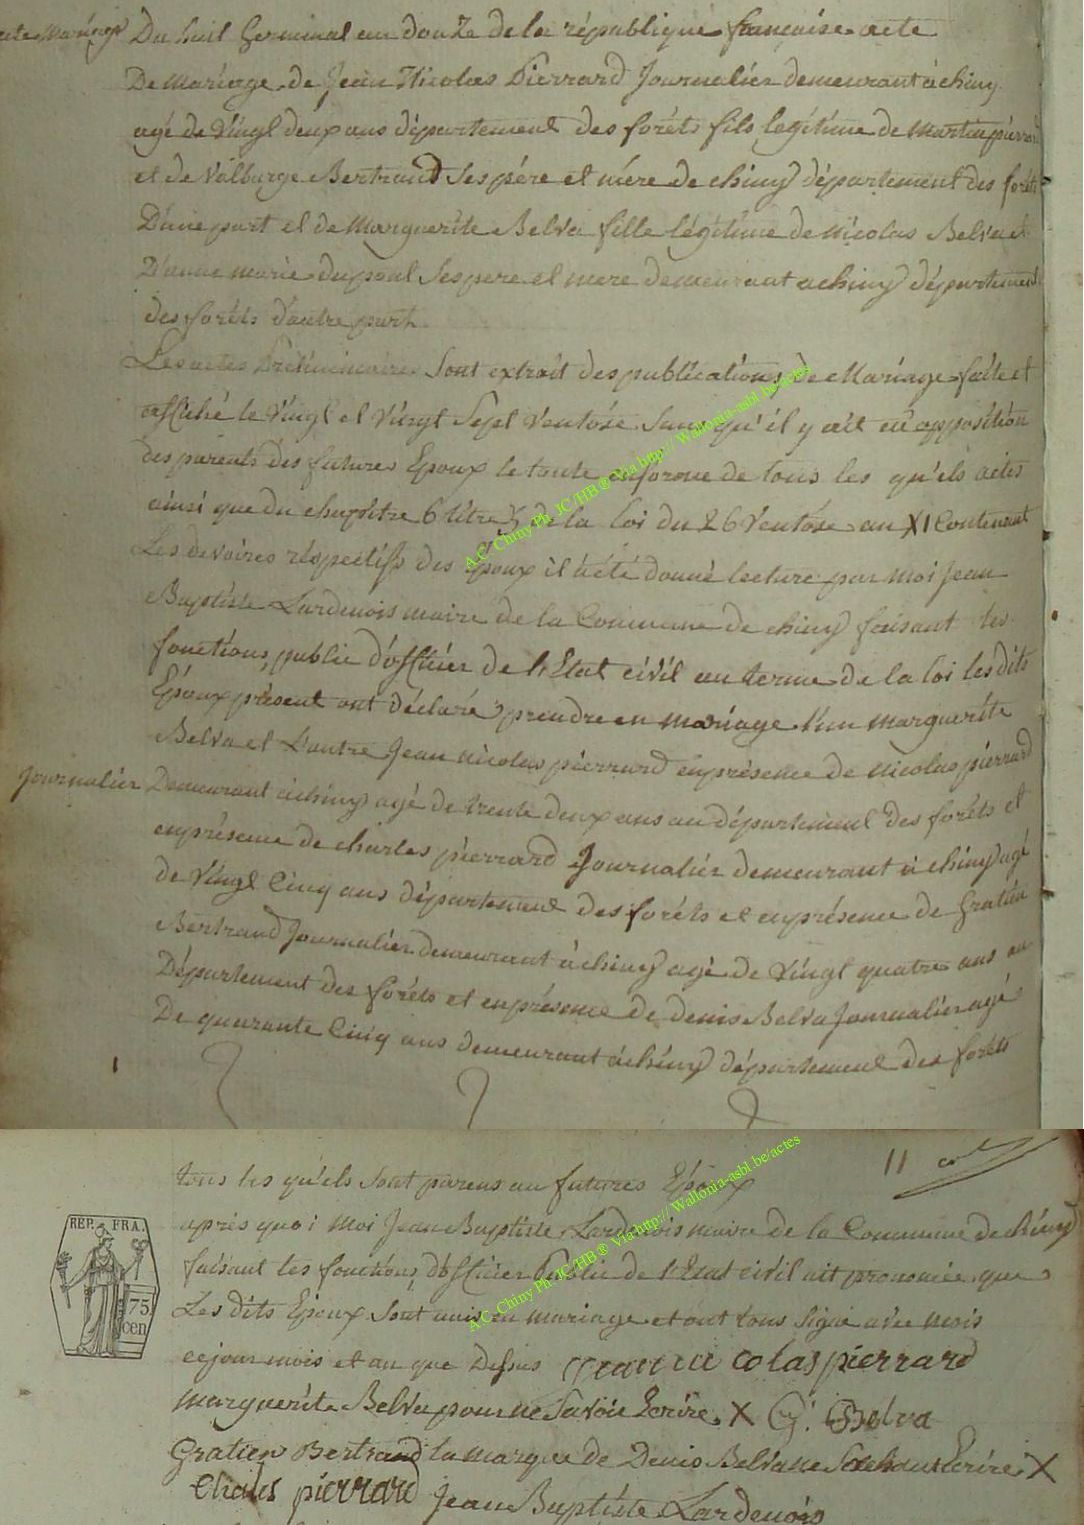 acte Mariage Du huit Germinal an douze de la république françoise acte
De Mariage de Jean Nicolas Pierrard Journalier demeurant à chiny
agé de Vingt deux ans département des forêts fils legitime de Martin pierrard
et de Valburge Bertrand Ses père et mére de chiny département des forêts
D'une part et de Marguerite Belva fille légitime de Nicolas Belva et
D'anne marie dupont Ses pere et mere demeurant a chiny département
des forêts d'autre part
Les actes Preliminaires Sont extrait des publications de Mariage faite et
affiché le Vingt et Vingt Sept Ventose Sans qu'il y ait eü apposition
des parents des futures Epoux le toute enforme de tous les qu'els actes
ainsi que du chapitre 6 titre 5 de la Loi du 26 Ventose an XI Contenant
Les devoires réspectifs des Epoux il àété donné lecture par moi Jean
Baptiste Lardenois maire de la Commune de chiny faisant les
fonctions public d'officier de l'Etat civil au terme de la loi les dits
Epoux présent ont déclaré prendre en mariage l'un marguerite
Belva et L'autre Jean nicolas pierrard enprésence de nicolas pierrard
Journalier Demeurant àchiny agé de trente deux ans au département des forêts et
enprésence de charles pierrard Journalier demeurant à chiny agé
de Vingt Cinq ans département des forêts et enprésence de Gratien
Bertrand Journalier demeurant à chiny agé de Vingt quatre ans au
Département des forêts et enprésence de denis Belva Journalier agé
De quarante Cinq ans demeurant àchiny département des forêts
A.C. Chiny Ph. JC/HB ® Via http:// Wallonia-asbl.be/actes
11
tous les qu'els Sont parens au futures Epoux
aprés quoi Moi Jean Baptiste Lardenois maire de la Commune de chiny
faisant les fonctions d'officier Public de l'Etat civil ait prononcée que
Les dits Epoux Sont unis en mariage et ont tous Signé avec mois
ce jour mois et an que Dessus Jean nicolas pierrard
marguerite Belva pour ne Savoir Ecrire X G. Belva
Gratien Bertrand la marque de Denis Belva ne Sachant Ecrire X
Charles pierrard Jean Baptiste Lardenois
REP. FRA.
75
cen
A.C. Chiny Ph. JC/HB ® Via http:// Wallonia-asbl.be/actes